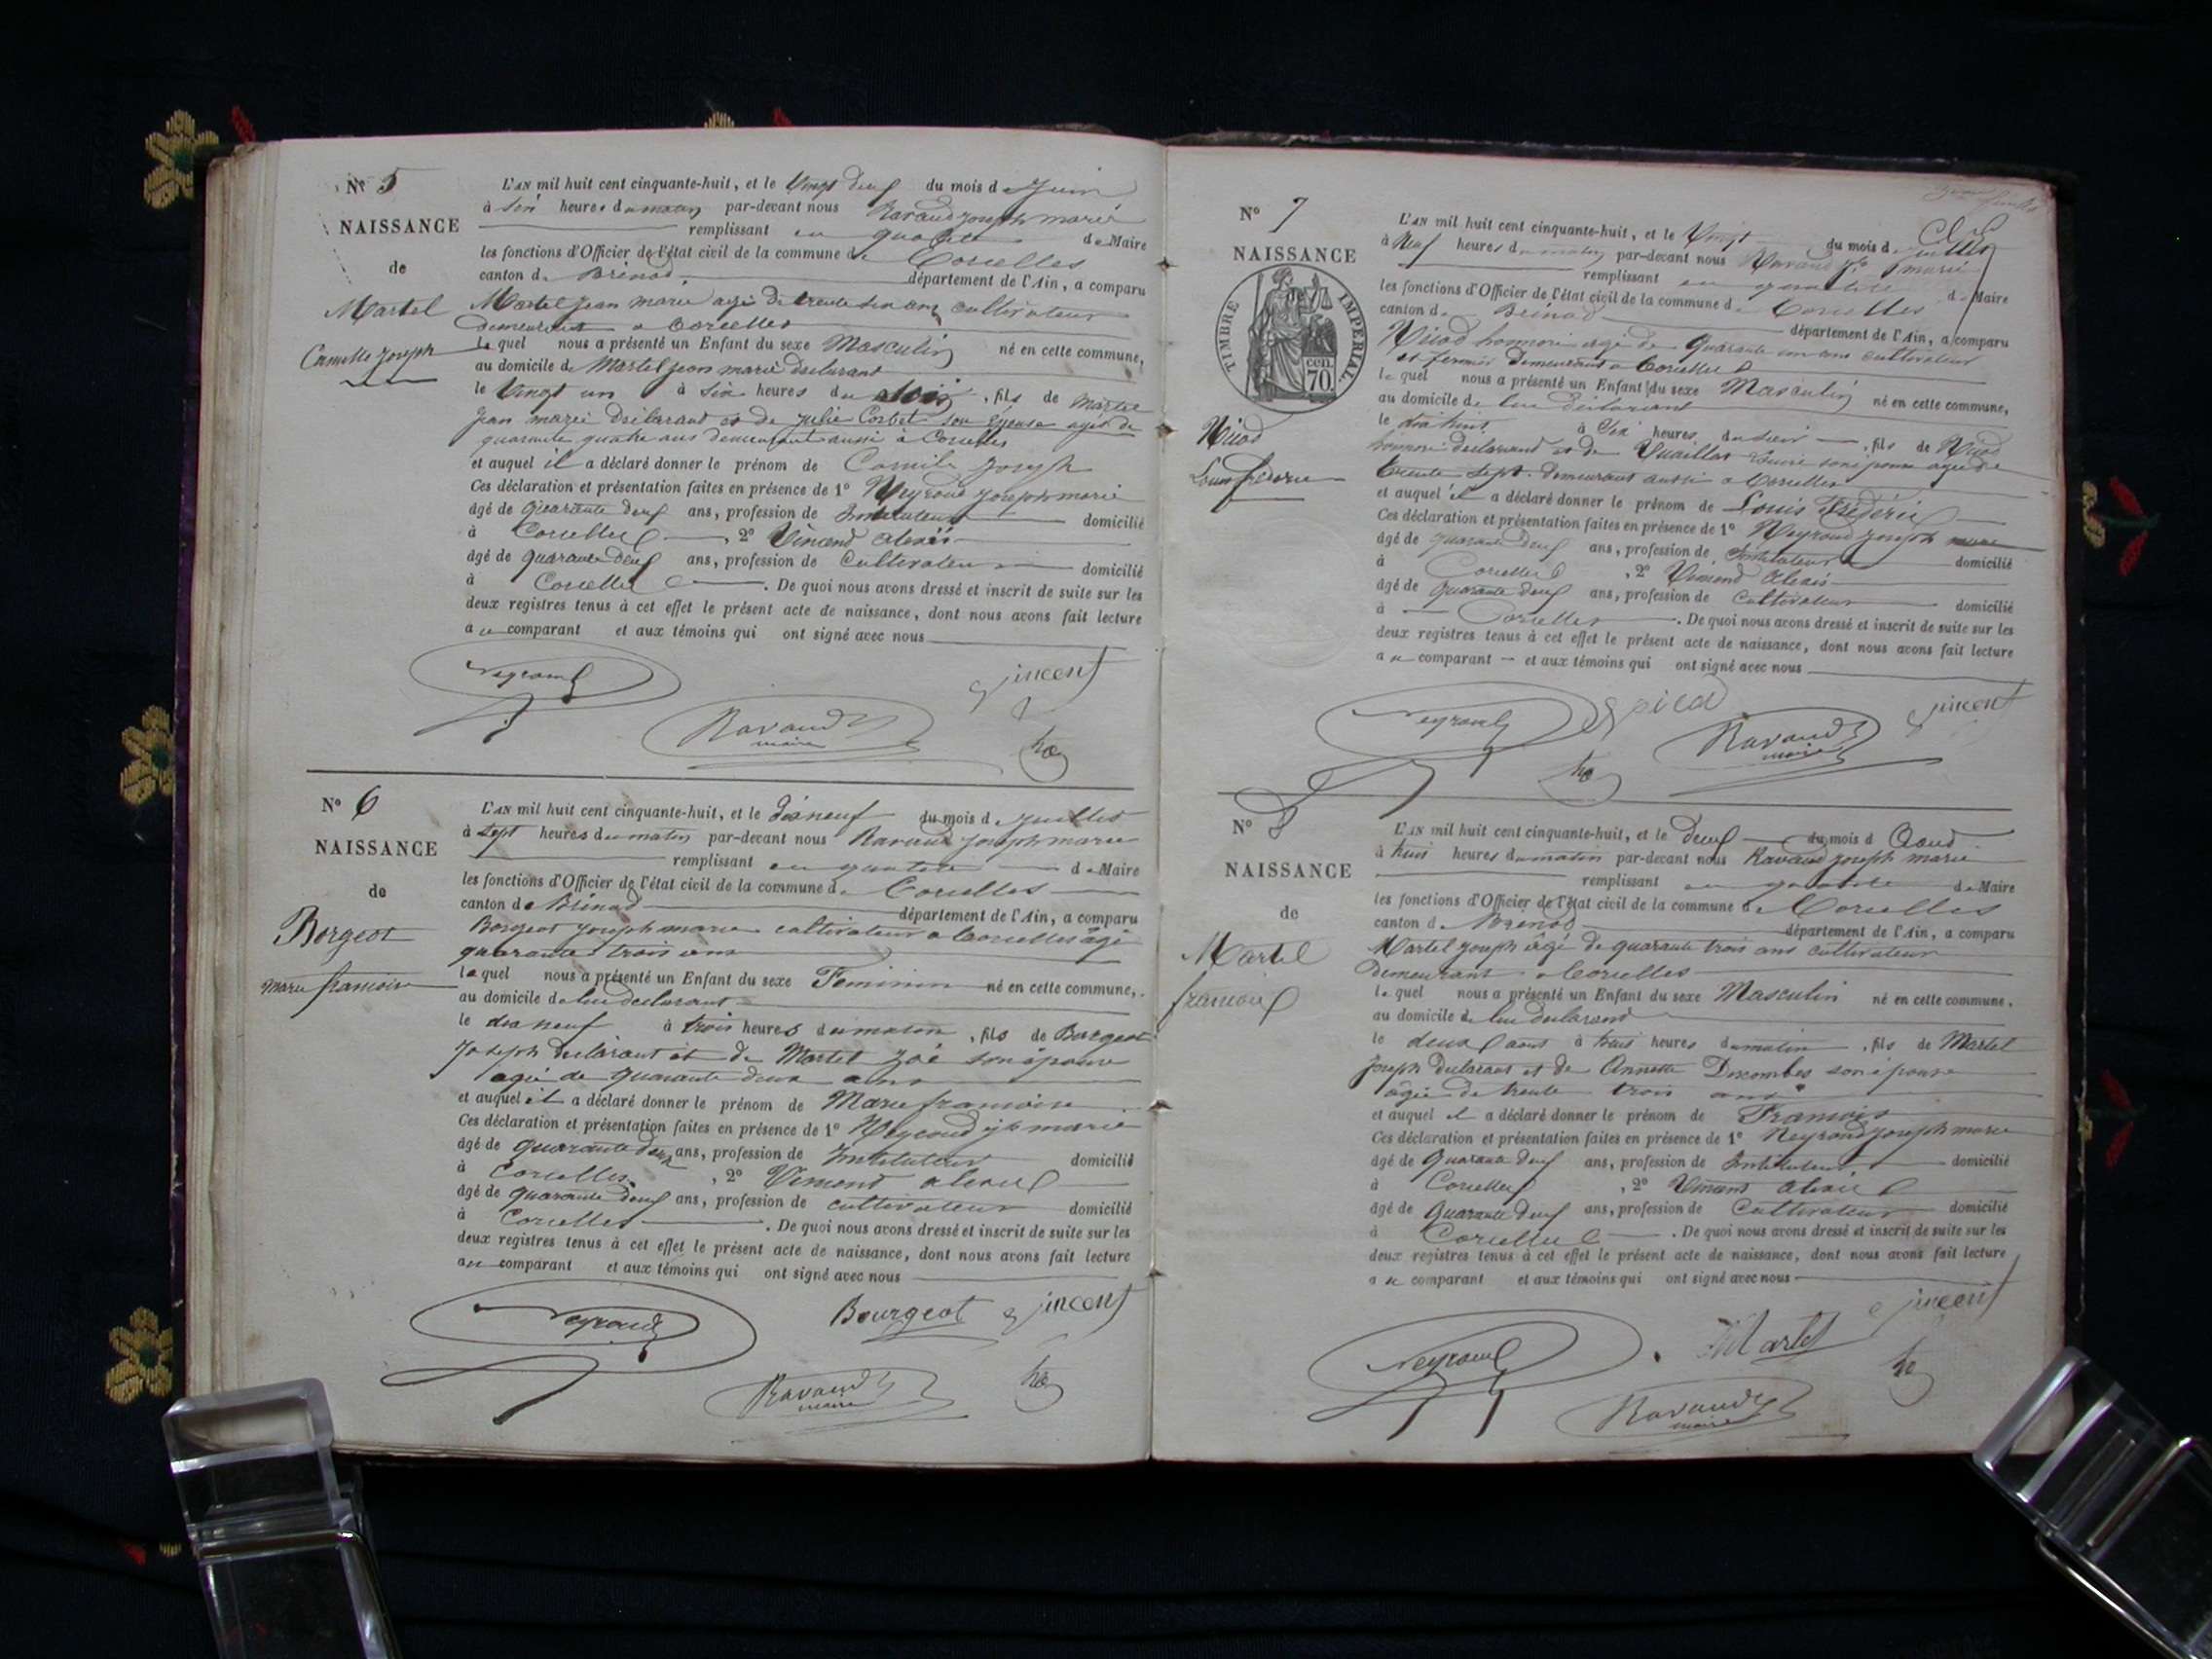 Nº 5
NAISSANCE
de
Martel
Camille Joseph
L'AN mil huit cent cinquante-huit, et le Vingt deux du mois de Juin
à six heures du matin par-devant nous Ravaud Joseph marie
remplissant en qualité de Maire
les fonctions d'Officier de l'état civil de la commune de Corcelles
canton de Brénod département de l'Ain, a comparu
Martel Jean marie agé de trente six ans cultivateur
demeurant a Corcelles
lequel nous a présenté un Enfant du sexe Masculin né en cette commune,
au domicile de Martel jean marie declarant
le Vingt un à six heures du soir, fils de Martel
Jean marie Déclarant et de Julie Corbet son épouse agée de
quarante quatre ans demeurant aussi à Corcelles
et auquel il a déclaré donner le prénom de Camile Joseph
Ces déclaration et présentation faites en présence de 1º Neyroud Joseph marie
âgé de quarante deux ans, profession de Instituteur domicilié
à Corcelles, 2º Vincend alexis
âgé de quarante deux ans, profession de Cultivateur domicilié
à Corcelles. De quoi nous avons dressé et inscrit de suite sur les
deux registres tenus à cet effet le présent acte de naissance, dont nous avons fait lecture
au comparant et aux témoins qui ont signé avec nous
Neyroud
Vincent
Ravaud
maire
Nº 6
NAISSANCE
de
Borgeot
Marie francoise
L'AN mil huit cent cinquante-huit, et le dix neuf du mois de Juillet
à sept heures du matin par-devant nous Ravaud Joseph marie
remplissant en qualité de Maire
les fonctions d'Officier de l'état civil de la commune de Corcelles
canton de Brénod département de l'Ain, a comparu
Borgeot Joseph marie cultivateur a Corcelles âgé
quarante trois ans
lequel nous a présenté un Enfant du sexe Feminin né en cette commune,
au domicile de lui declarant
le dix neuf à trois heures du matin, fils de Borgeot
Joseph declarant et de Martel Zoé son épouse
agée de quarante deux ans
et auquel il a déclaré donner le prénom de Marie francoise
Ces déclaration et présentation faites en présence de 1º Neyroud jh marie
âgé de quarante deux ans, profession de Instituteur domicilié
à Corcelles, 2º Vincent alexis
âgé de quarante deux ans, profession de cultivateur domicilié
à Corcelles. De quoi nous avons dressé et inscrit de suite sur les
deux registres tenus à cet effet le présent acte de naissance, dont nous avons fait lecture
au comparant et aux témoins qui ont signé avec nous
Neyroud
Bourgeot
Vincent
Ravaud
maire
Nº 7
NAISSANCE
TIMBRE IMPERIAL.
cen.
70.
Nicod
Louis fréderic
L'AN mil huit cent cinquante-huit, et le Vingt du mois de Juillet
à Neuf heures du matin par-devant nous Ravaud Jh marie
remplissant en qualité de Maire
les fonctions d'Officier de l'état civil de la commune de Corcelles
canton de Brénod département de l'Ain, a comparu
Nicod honnoré agé de Quarante un ans cultivateur
et fermier demeurant a Corcelles
lequel nous a présenté un Enfant du sexe Masculin né en cette commune,
au domicile de lui déclarant
le dix huit à six heures du soir, fils de Nicod
honnoré declarant et de Louise son épouse agée de
trente sept demeurant aussi a Corcelles
et auquel il a déclaré donner le prénom de Louis Frédéric
Ces déclaration et présentation faites en présence de 1º Neyroud Joseph marie
âgé de quarante deux ans, profession de Instituteur domicilié
à Corcelles, 2º Vincend Alexis
âgé de quarante deux ans, profession de Cultivateur domicilié
à Corcelles. De quoi nous avons dressé et inscrit de suite sur les
deux registres tenus à cet effet le présent acte de naissance, dont nous avons fait lecture
au comparant et aux témoins qui ont signé avec nous
Neyroud
Vincent
Ravaud
maire
Nº 8
NAISSANCE
de
Martel
francois
L'AN mil huit cent cinquante-huit, et le deux du mois d Aoud
à huit heures du matin par-devant nous Ravaud Joseph marie
remplissant en qualité de Maire
les fonctions d'Officier de l'état civil de la commune de Corcelles
canton de Brénod département de l'Ain, a comparu
Martel Joseph âgé de quarante trois ans cultivateur
demeurant a Corcelles
lequel nous a présenté un Enfant du sexe Masculin né en cette commune.
au domicile de lui declarand
le deux aout à trois heures du matin, fils de Martel
Joseph declarant et de Annette Descombes son épouse
âgée de trente trois ans
et auquel il a déclaré donner le prénom de Francois
Ces déclaration et présentation faites en présence de 1º Neyroud Joseph marie
âgé de Quarante deux ans, profession de Instituteur domicilié
à Corcelles, 2º Vincent Alexis
âgé de Quarante deux ans, profession de Cultivateur domicilié
à Corcelles. De quoi nous avons dressé et inscrit de suite sur les
deux registres tenus à cet effet le présent acte de naissance, dont nous avons fait lecture
au comparant et aux témoins qui ont signé avec nous
Neyroud
Martel
Vincent
Ravaud
maire